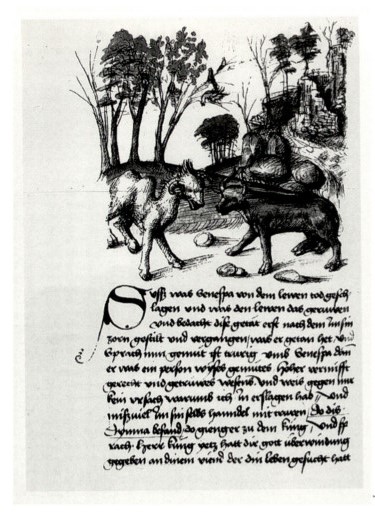 Suss was Senespa von dem lewen tod gesch
lagen und was den lewen das gerawen
und bedacht dise getat erst nach dem im sin
zorn gestilt und vergangen was er getan het und
sprach min gemüt ist trurig umb Senespa dan
er was ein person wyses gemütes hoher vernufft
gerecht und getruwes wesens und weis gegen mir
kein ursach warumb ich in erslagen hab und
mißviel im sin selbs handel mit truren do dis
Dimna befand do gienger zu dem küng und sp
rach herr küng yetz hatt dir gott überwindung
gegeben an dinem viend der din leben gesucht hatt